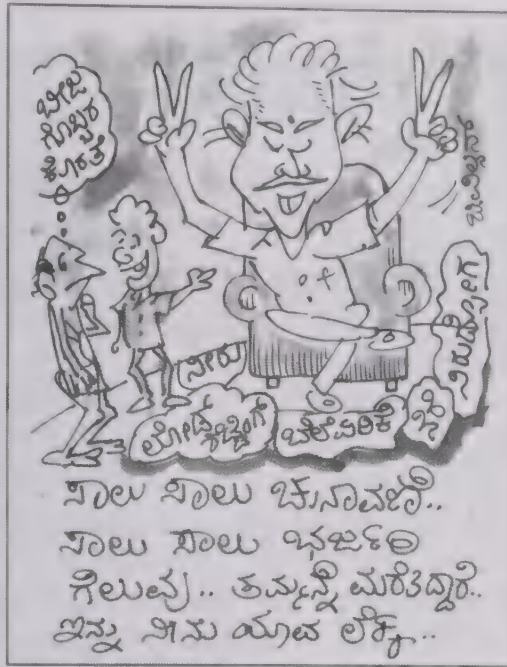 ಬೀಜ
ಗೊಬ್ಬರ
ಕೊರತೆ
ನೀರು
ಲೋಡ್‌ಶೆಡ್ಡಿಂಗ್
ಬೆಲೆಏರಿಕೆ
ನಿರುದ್ಯೋಗ
ಸಾಲು ಸಾಲು ಚುನಾವಣೆ..
ಸಾಲು ಸಾಲು ಭರ್ಜರಿ
ಗೆಲುವು.. ತಮ್ಮನ್ನೆ ಮರೆತಿದ್ದಾರೆ..
ಇನ್ನು ನೀನು ಯಾವ ಲೆಕ್ಕ..